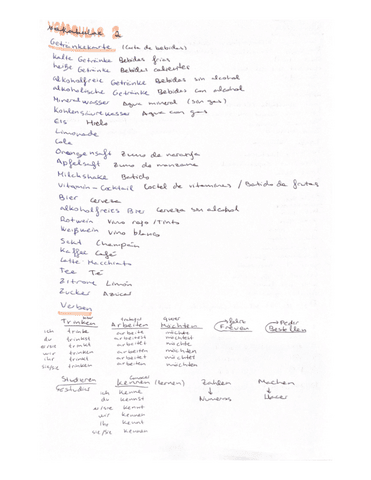 Vokabular 2
Getränkekarte (Carta de bebidas)
Kalte Getränke Bebidas frías
heiße Getränke Bebidas calientes
Alkoholfreie Getränke Bebidas sin alcohol
alkoholische Getränke Bebidas con alcohol
Mineralwasser Agua mineral (sin gas)
Kohlensäurewasser Agua con gas
Eis Hielo
Limonade
Cola
Orangensaft Zumo de naranja
Apfelsaft Zumo de manzana
Milchshake Batido
Vitamin-Cocktail Coctel de vitaminas / Batido de frutas
Bier Cerveza
alkoholfreies Bier Cerveza sin alcohol
Rotwein Vino rojo/Tinto
Weißwein Vino blanco
Sekt Champán
Kaffee Café
Latte Macchiato
Tee Té
Zitrone Limón
Zucker Azucar
Verben
trabajar querer Pedir
Trinken Arbeiten Möchten Bestellen
ich trinke arbeite möchte
du trinkst arbeitest möchtest
er/sie trinkt arbeitet möchte
wir trinken arbeiten möchten
ihr trinkt arbeitet möchtet
sie/Sie trinken arbeiten möchten
Conocer
Studieren Kennen (lernen) Zahlen Machen
ich kenne
du kennst Numeros Hacer
er/sie kennt
wir kennen
ihr kennt
sie/Sie kennen